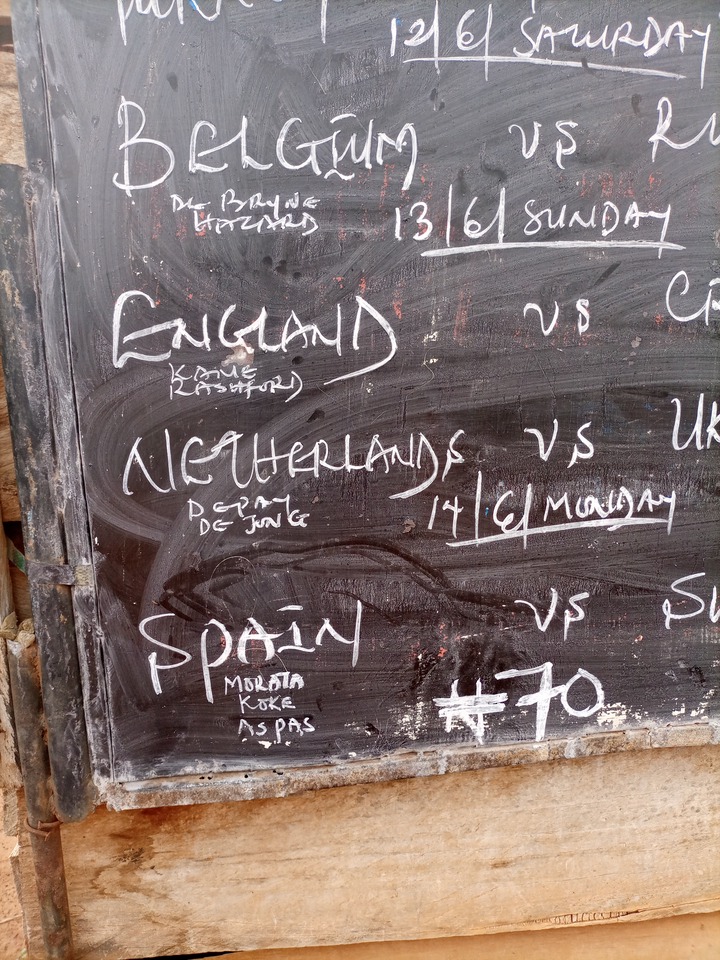 12/6/ SATURDAY
BELGIUM vs RU
DE BRUYNE
HAZARD
13/6/ SUNDAY
ENGLAND vs CR
KANE
RASHFORD
NETHERLANDS vs UK
DEPAY
DE JONG
14/6/ MONDAY
SPAIN vs SW
MORATA
KOKE
ASPAS
₦70